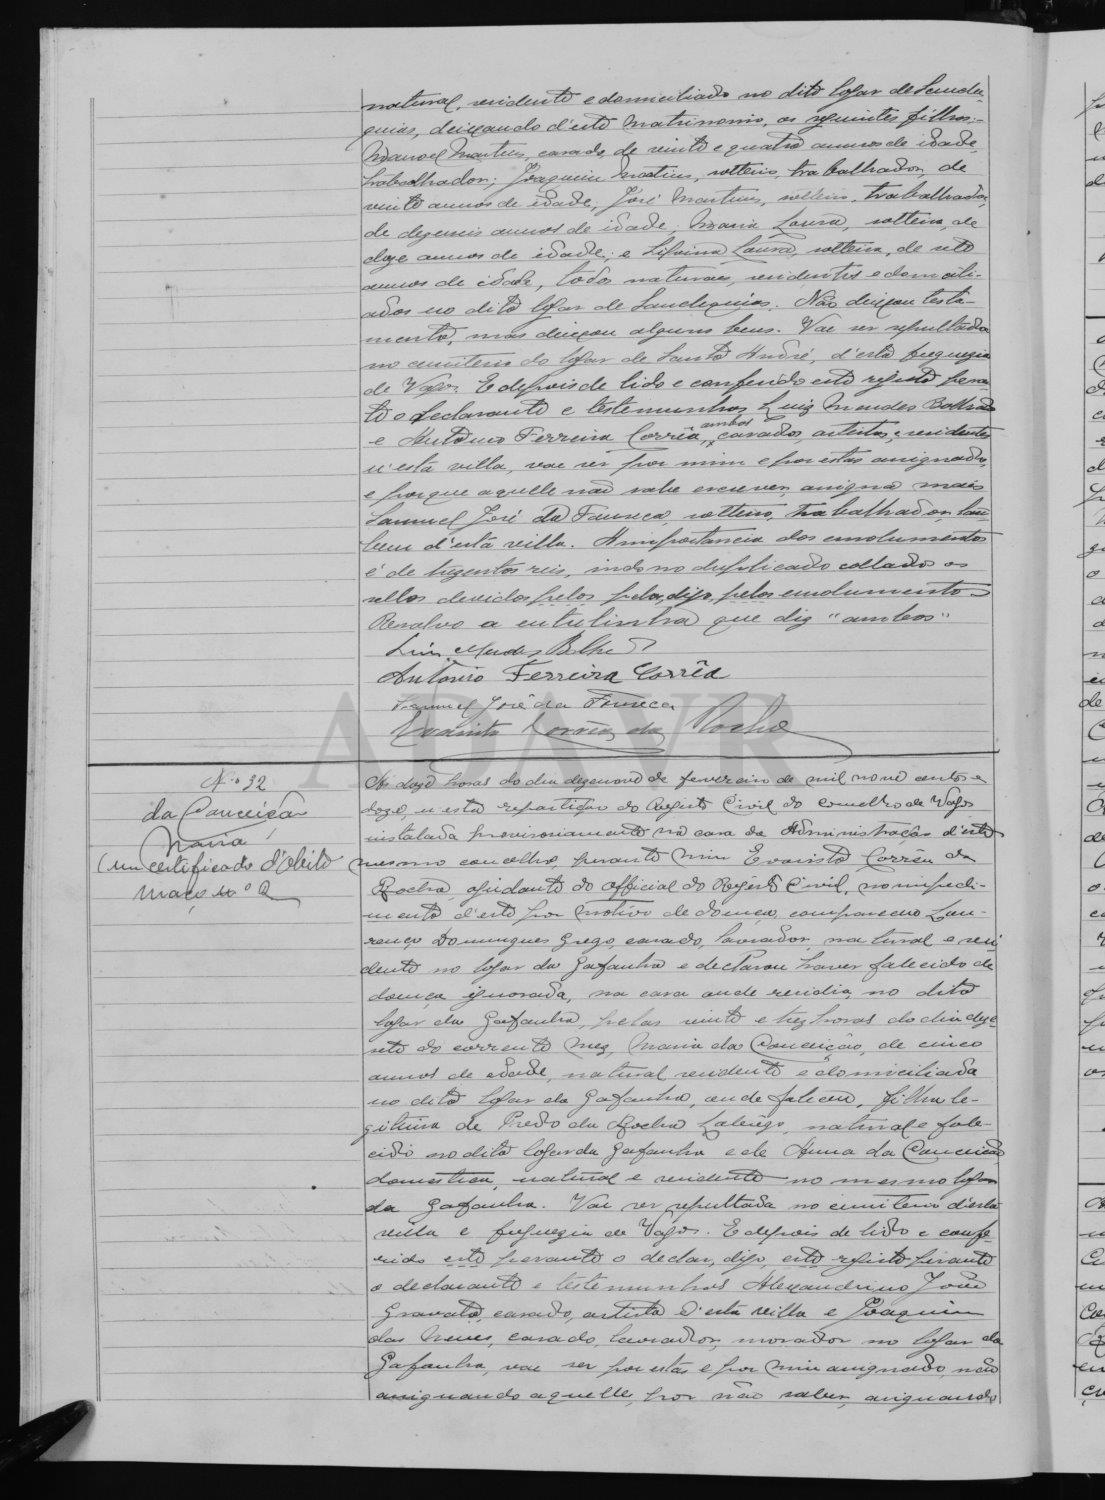 natural, residente e domiciliado no dito logar de Sanche-
quias, deixando d'este matrimonio, os seguintes filhos:-
Manoel Martins, casado, de vinte e quatro annos de idade,
trabalhador; Joaquim Martins, solteiro, trabalhador, de
vinte annos de idade, José Martins, solteiro, trabalhador,
de dezeseis annos de idade, Maria Laura, solteira, de
doze annos de idade; e Silvina Laura, solteira, de sete
annos de idade, todos naturaes, residentes e domicili-
ados no dito logar de Sanchequias. Não deixou testa-
mento, mas deixou alguns bens. Vae ser sepultada
no cemiterio do logar de Santo André, d'esta freguezia
de Vagos. E depois de lido e conferido este registo peran-
te o declarante e testemunhas Luiz Mendes Bolhão
ambos
e Antonio Ferreira Corrêa, casados, artistas, e residentes
n'esta villa, vae ser por mim e por estas assignado,
e porque aquelle não sabe escrever, assigna mais
Samuel José da Fonseca, solteiro, trabalhador, tam-
bem d'esta villa. A importancia dos emolumentos
é de trezentos reis, indo no duplicado collados os
sellos devidos pelos pelos, digo, pelos emolumentos
Resalvo a entrelinha que diz "ambos"
Luiz Mendes Bolhão
Antonio Ferreira Corrêa
Samuel José da Fonseca
Evaristo Corrêa da Rocha
ADAVR
N.º 32
da Conceição
Maria
(um certificado d'obito
maço n.º 2
Ás doze horas do dia dezenove de fevereiro de mil nove centos e
doze, n'esta repartição do Registo Civil do concelho de Vagos
installada provisoriamente na casa da Administração d'este
mesmo concelho, perante mim Evaristo Corrêa da
Rocha, ajudante do official do Registo Civil, no impedi-
mento d'este por motivo de doença, compareceu Lou-
renço Domingues Grego, casado, lavrador, natural e resi-
dente no logar da Gafanha e declarou haver falecido de
doença ignorada, na casa onde residia, no dito
logar da Gafanha, pelas vinte e trez horas do dia deze-
sete do corrente mez, Maria da Conceição, de cinco
annos de edade, natural residente e domiciliada
no dito logar da Gafanha, onde faleceu, filha le-
gitima de Predo da Rocha, natural e fale-
cido no dito logar da Gafanha e de Anna da Conceição
domestica, natural e residente no mesmo logar
da Gafanha. Vae ser sepultada no cemiterio d'esta
villa e freguezia de Vagos. E depois de lido e confe-
rido este perante o declar, digo, este registo perante
o declarante e testemunhas Alexandrino José
Gravato, casado, artista d'esta villa e Joaquim
das Neves, casado, lavrador, morador no logar da
Gafanha, vae ser por estas e por mim assignado, não
assignando aquelle, por não saber, assignando